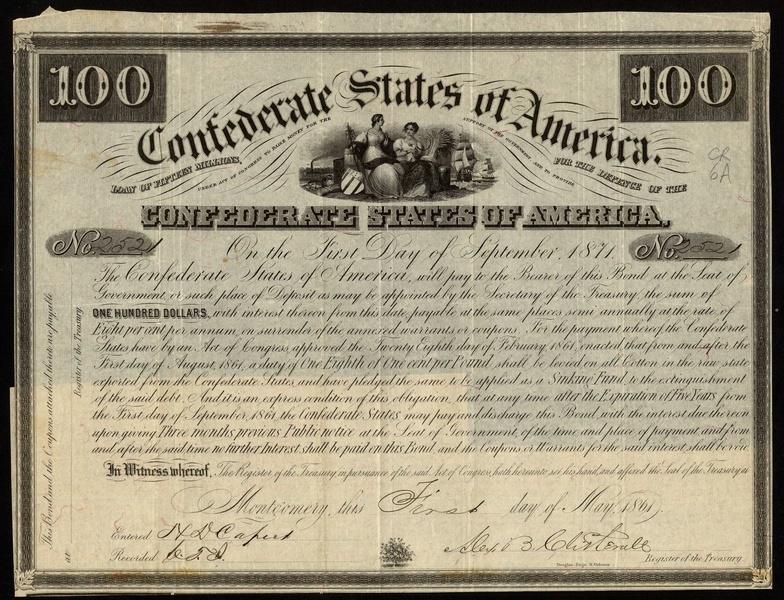 100
100
Confederate States of America.
LOAN OF FIFTEEN MILLIONS,
UNDER ACT OF CONGRESS TO RAISE MONEY FOR THE
SUPPORT OF THE GOVERNMENT AND TO PROVIDE
FOR THE DEFENCE OF THE
CONFEDERATE STATES OF AMERICA.
CR
6A
No. 2521
No. 2521
On the First Day of September, 1871.
The Confederate States of America, will pay to the Bearer of this Bond, at the Seat of
Government, or such place of Deposit as may be appointed by the Secretary of the Treasury, the sum of
ONE HUNDRED DOLLARS, with interest thereon from this date, payable at the same places, semi annually at the rate of
Eight per cent per annum, on surrender of the annexed warrants or coupons. For the payment whereof the Confederate
States have by an Act of Congress approved the Twenty Eighth day of February 1861, enacted that from and after the
First day of August, 1861, a duty of One Eighth of One cent per Pound shall be levied on all Cotton in the raw state
exported from the Confederate States, and have pledged the same to be applied as a Sinking Fund, to the extinguishment
of the said debt. And it is an express condition of this obligation, that at any time after the Expiration of Five Years from
the First day of September, 1861, the Confederate States, may pay and discharge this Bond, with the interest due thereon
upon giving Three months previous Public notice at the Seat of Government, of the time and place of payment, and from
and after the said time no further Interest shall be paid on this Bond, and the Coupons or Warrants for the said interest shall be void.
In Witness whereof, The Register of the Treasury, in pursuance of the said Act of Congress, hath hereunto set his hand, and affixed the Seal of the Treasury at
Montgomery, this First day of May, 1861.
Entered H D Capers
Recorded
Alex B. Clitherall
Register of the Treasury.
This Bond and the Coupons attached thereto are payable
at
Register of the Treasury